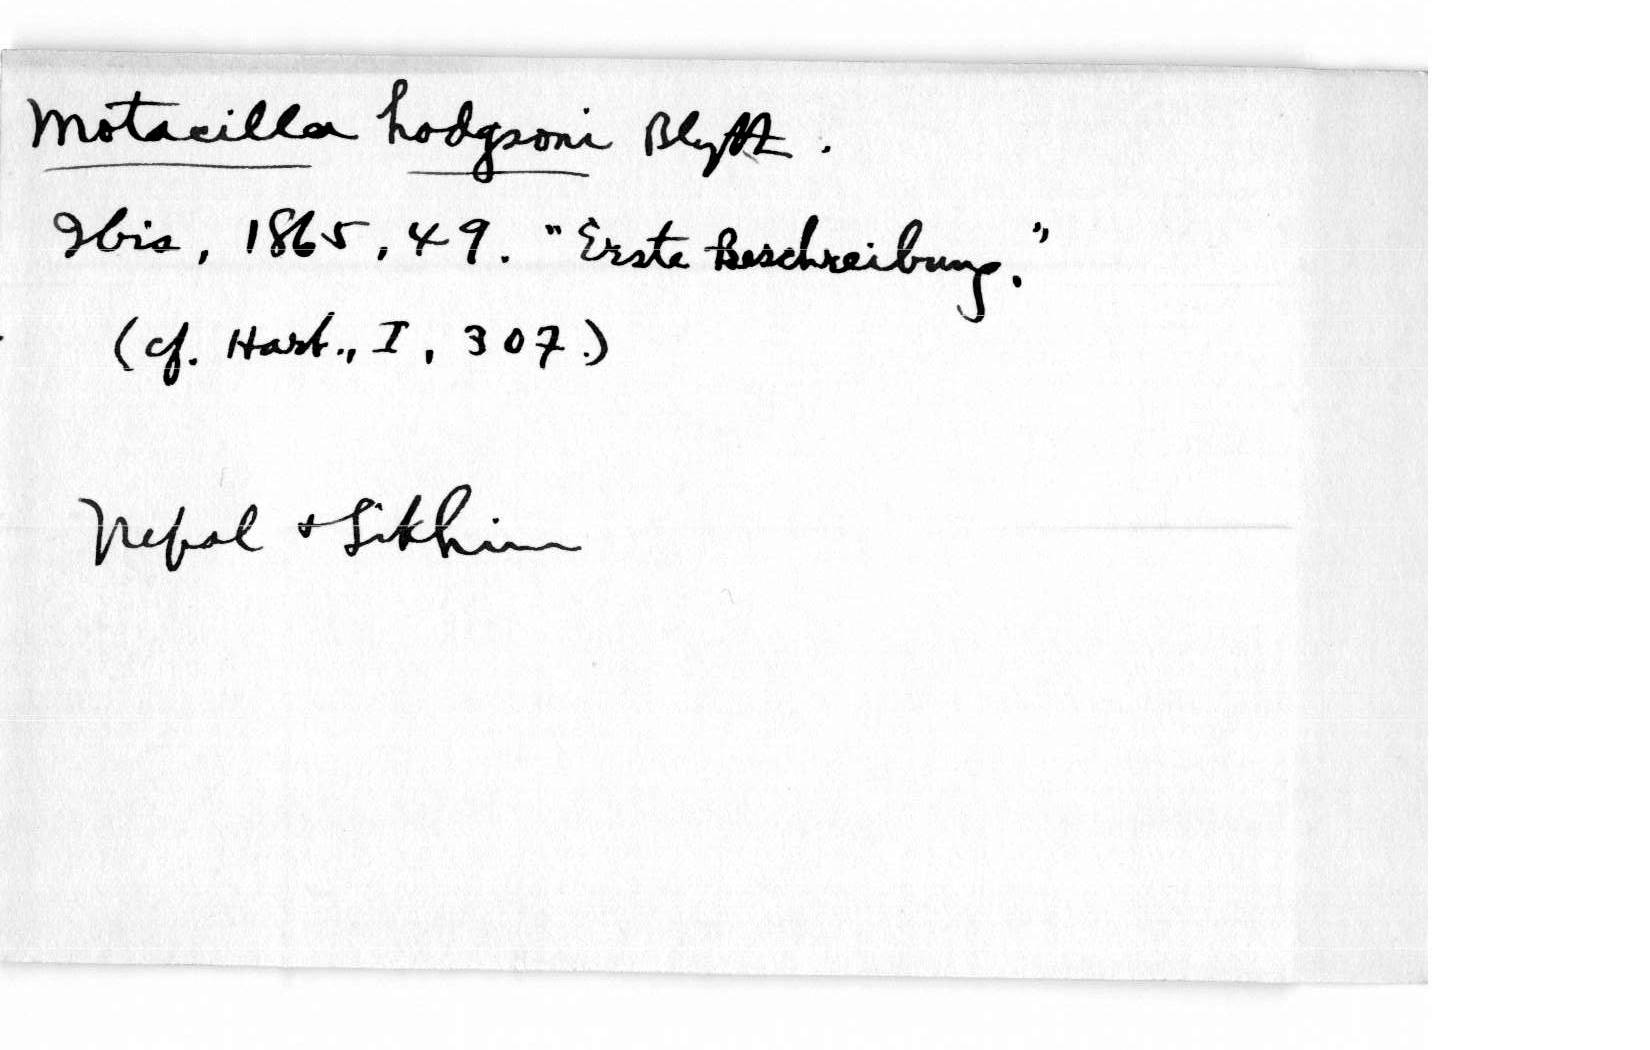 Motacilla hodgsoni Blyth.
Ibis, 1865, 49. "Erste Beschreibung."
(cf. Hart., I, 307.)
Nepal + Sikhim